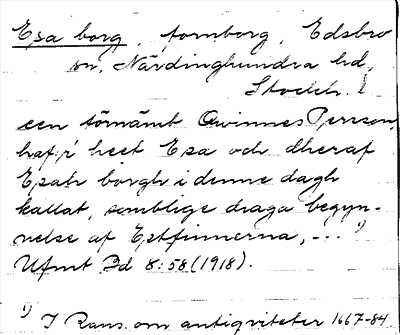 Esa borg, fornborg, Edsbro
sn, Närdinghundra hd,
Stockh. l
een förnämt Qwinnes Persson,
haf:r heet Esa och dheraf
Esah borgh i denne dagh
kallat, somblige draga begyn-
nelse af Estfinnerna, -.. 1)
Ufmt Bd 8:58 (1918).
1) I Rans. om antiqviteter 1667-84